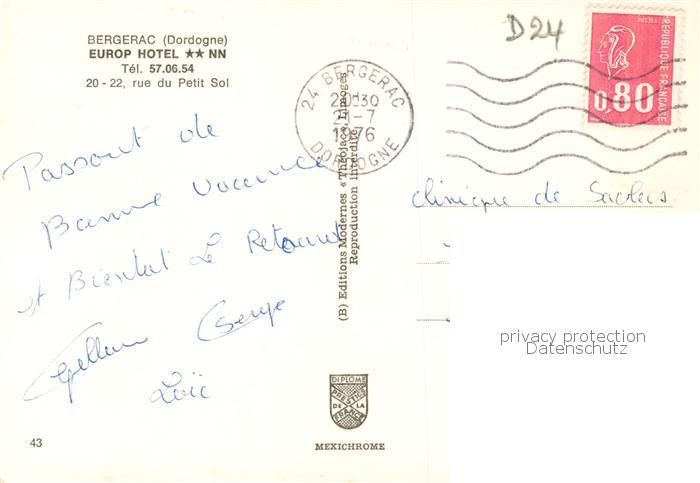 BERGERAC (Dordogne)
EUROP HOTEL ★★ NN
Tél. 57.06.54
20-22, rue du Petit Sol
Passont de
Bonne Vacance
et Bientot Le Retour
Serge
Loïc
43
24 BERGERAC
1976
DORDOGNE
(B) Editions Modernes « Théojac », Limoges
Reproduction interdite
DIPLOME
PRESTIGE
DE LA
FRANCE
MEXICHROME
D24
POSTES
REPUBLIQUE FRANÇAISE
0,80
clinique de Saclas
privacy protection
Datenschutz